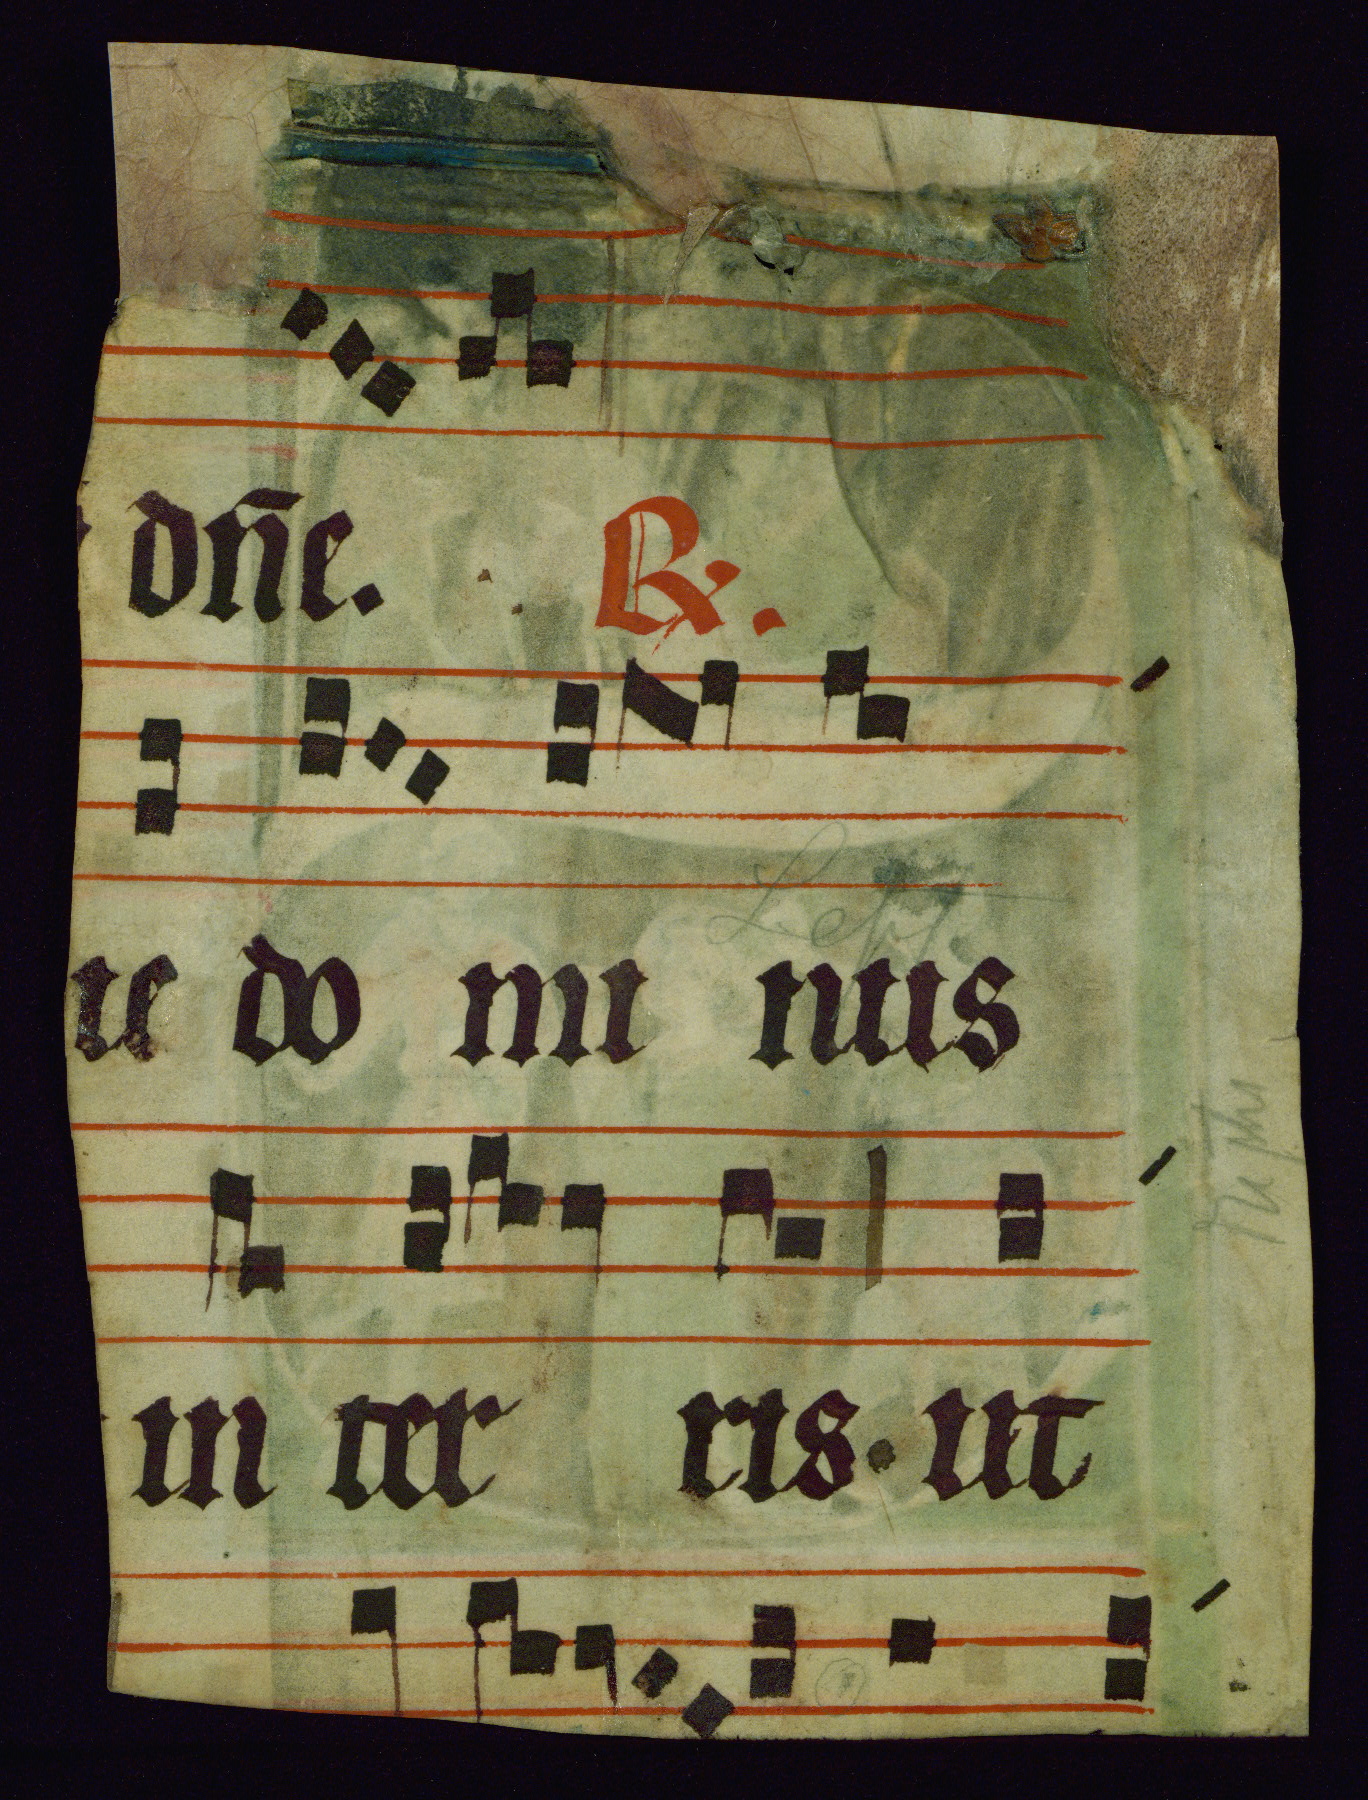 dn̄e. ℟.
ue do mi nus
in ter ris. ut